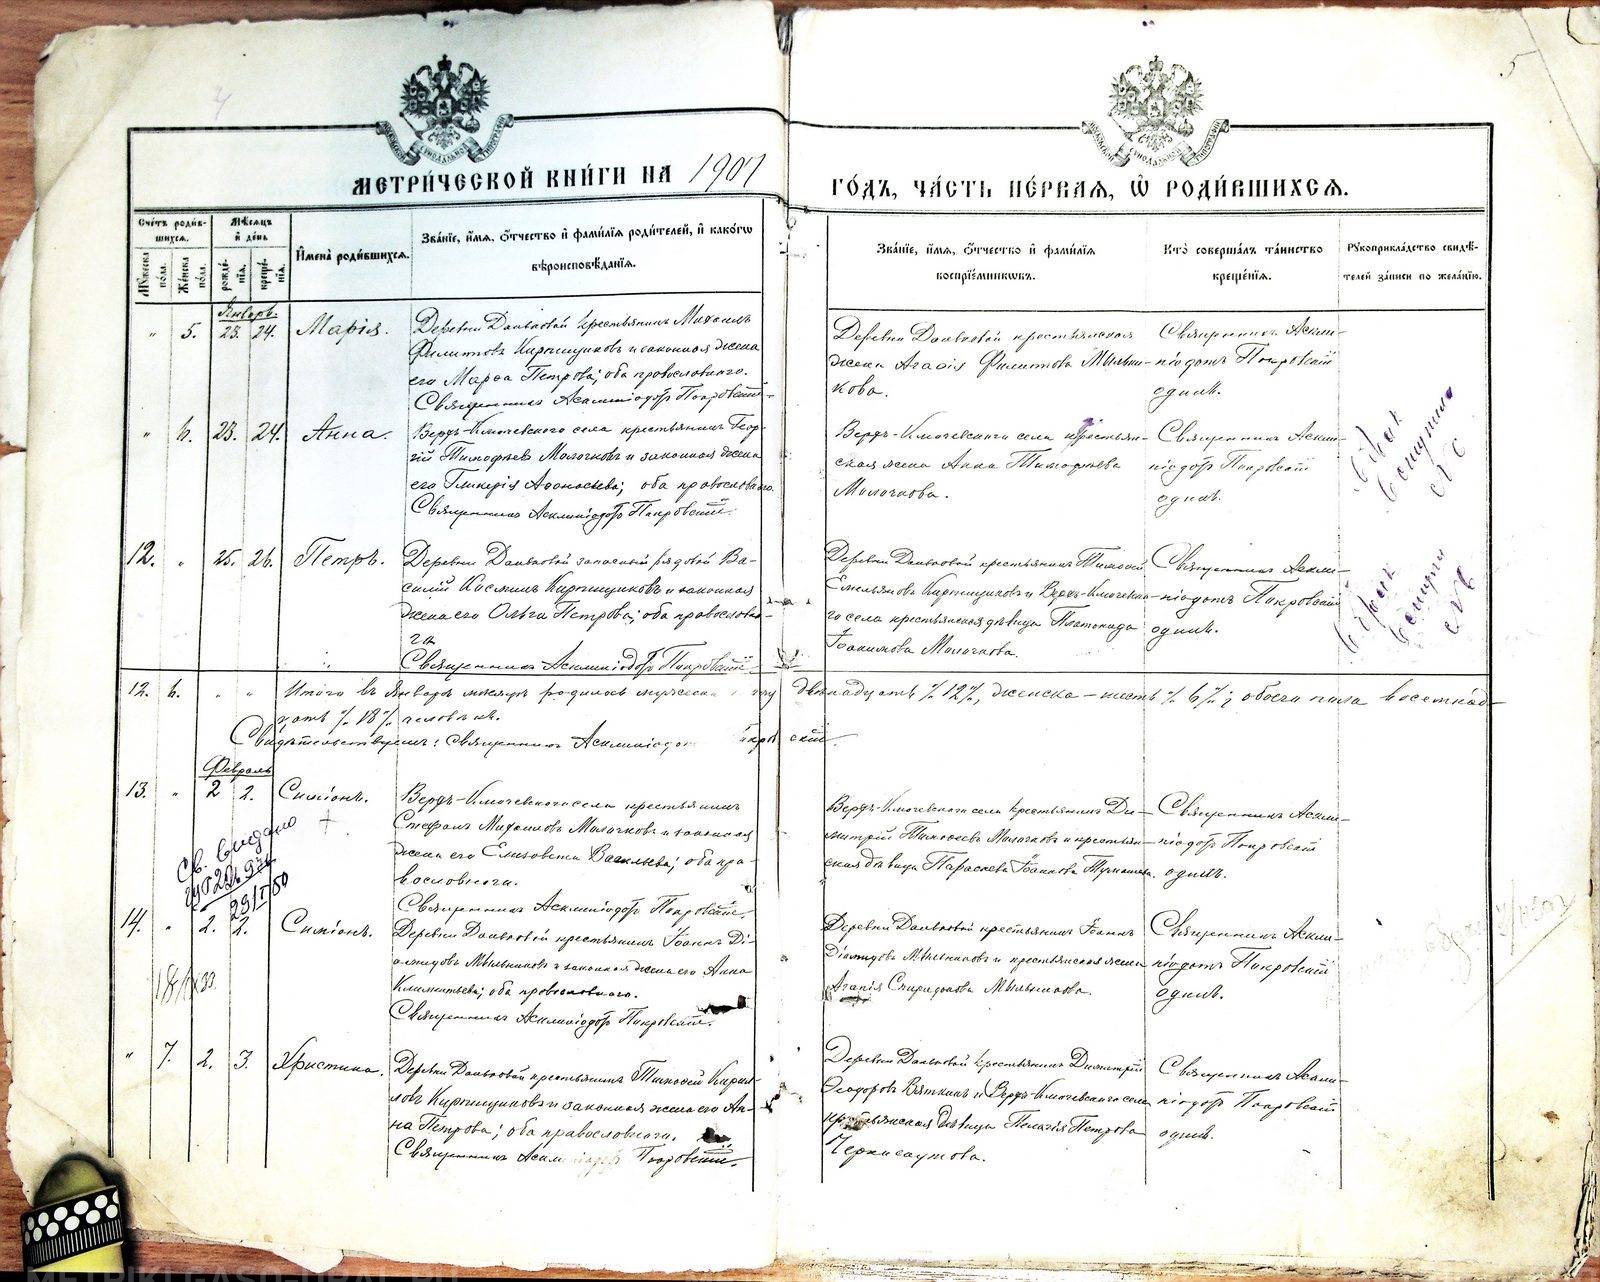 5
МЕТРИ́ЧЕСКОЙ КНИ́ГИ НА 1907 ГО́ДЪ, ЧА́СТЬ ПЕ́РВАЯ, Ѽ РОДИ́ВШИХСЯ.
Сче́тъ роди́вшихся.
Му́жеска по́ла.
Же́нска по́ла.
Мѣ́сяцъ и҆ де́нь
рожде́нія.
креще́нія.
И҆мена̀ роди́вшихся.
Зва́ніе, и҆́мя, ѻ҆́тчество и҆ фами́лія роди́телей, и҆ како́гѡ
вѣроисповѣ́данія.
Зва́ніе, и҆́мя, ѻ҆́тчество и҆ фами́лія
воспріе́мникѡвъ.
Кто̀ соверша́лъ та́инство
креще́нія.
Рꙋкоприкла́дство свидѣ́-
телей за́писи по жела́нію.
Январь.
" 5. 23. 24. Марія.
Деревни Даньковой крестьянинъ Михаилъ
Филиповъ Кирпищиковъ и законная жена
его Марѳа Петрова; оба православнаго.
Священникъ Асклипіодотъ Покровскій.
Деревни Даньковой крестьянская
жена Агаѳія Филитова Мыльни-
кова.
Священникъ Аскли-
піодотъ Покровскій
одинъ.
" 6. 23. 24. Анна.
Вердъ-Ключевского села крестьянинъ Геор-
гій Тимоѳеевъ Молочковъ и законная жена
его Гликерія Аѳонасьева; оба православнаго.
Священникъ Асклипіодотъ Покровскій.
Вердъ-Ключевского села крестьян-
ская жена Анна Тимофѣева
Молочкова.
Священникъ Аскли-
піодотъ Покровскій
одинъ.
12. " 25. 26. Петръ.
Деревни Даньковой запасный рядовой Ва-
силій Косминъ Кирпищиковъ и законная
жена его Ольга Петрова; оба православна-
го.
Священникъ Асклипіодотъ Покровскій.
Деревни Даньковой крестьянинъ Тимоѳей
Емельяновъ Кирпищиковъ и Вердъ-Ключевска-
го села крестьянская дѣвица Платонида
Іоакимова Молочкова.
Священникъ Аскли-
піодотъ Покровскій
одинъ.
12. 6. " " Итого въ Январѣ мѣсяцѣ родилось мужеска полу двѣнадцать /12/, женска – шесть /6/; обоего пола восемнад-
цать /18/ человѣкъ.
Свидѣтельствуемъ: Священникъ Асклипіодотъ Покровскій.
Февраль
13. " 2 2. Симіонъ.
Вердъ-Ключевского села крестьянинъ
Стефанъ Михаиловъ Молочковъ и законная
жена его Елизавета Васильева; оба пра-
вославнаго.
Священникъ Асклипіодотъ Покровскій.
Вердъ-Ключевского села крестьянинъ Ди-
митрій Тимоѳеевъ Молочковъ и крестьян-
ская дѣвица Параскева Іоаннова
Священникъ Аскли-
піодотъ Покровскій
одинъ.
Св. выдано
29/I 50
14. " 2. 2. Симіонъ.
Деревни Даньковой крестьянинъ Іоаннъ Ді-
омидовъ Мыльниковъ и законная жена его Анна
Климентьева; оба православнаго.
Священникъ Асклипіодотъ Покровскій.
Деревни Даньковой крестьянинъ Іоаннъ
Діомидовъ Мыльниковъ и крестьянская жена
Агапія Спиридонова Мыльникова.
Священникъ Аскли-
піодотъ Покровскій
одинъ.
" 7. 2. 3. Христина.
Деревни Даньковой крестьянинъ Тимоѳей Кирил-
ловъ Кирпищиковъ и законная жена его Ан-
на Петрова; оба православнаго.
Священникъ Асклипіодотъ Покровскій.
Деревни Даньковой крестьянинъ Димитрій
Ѳеодоровъ Вяткинъ и Вердъ-Ключевского села
крестьянская дѣвица Пелагія Петрова
Черкасутова.
Священникъ Аскли-
піодотъ Покровскій
одинъ.